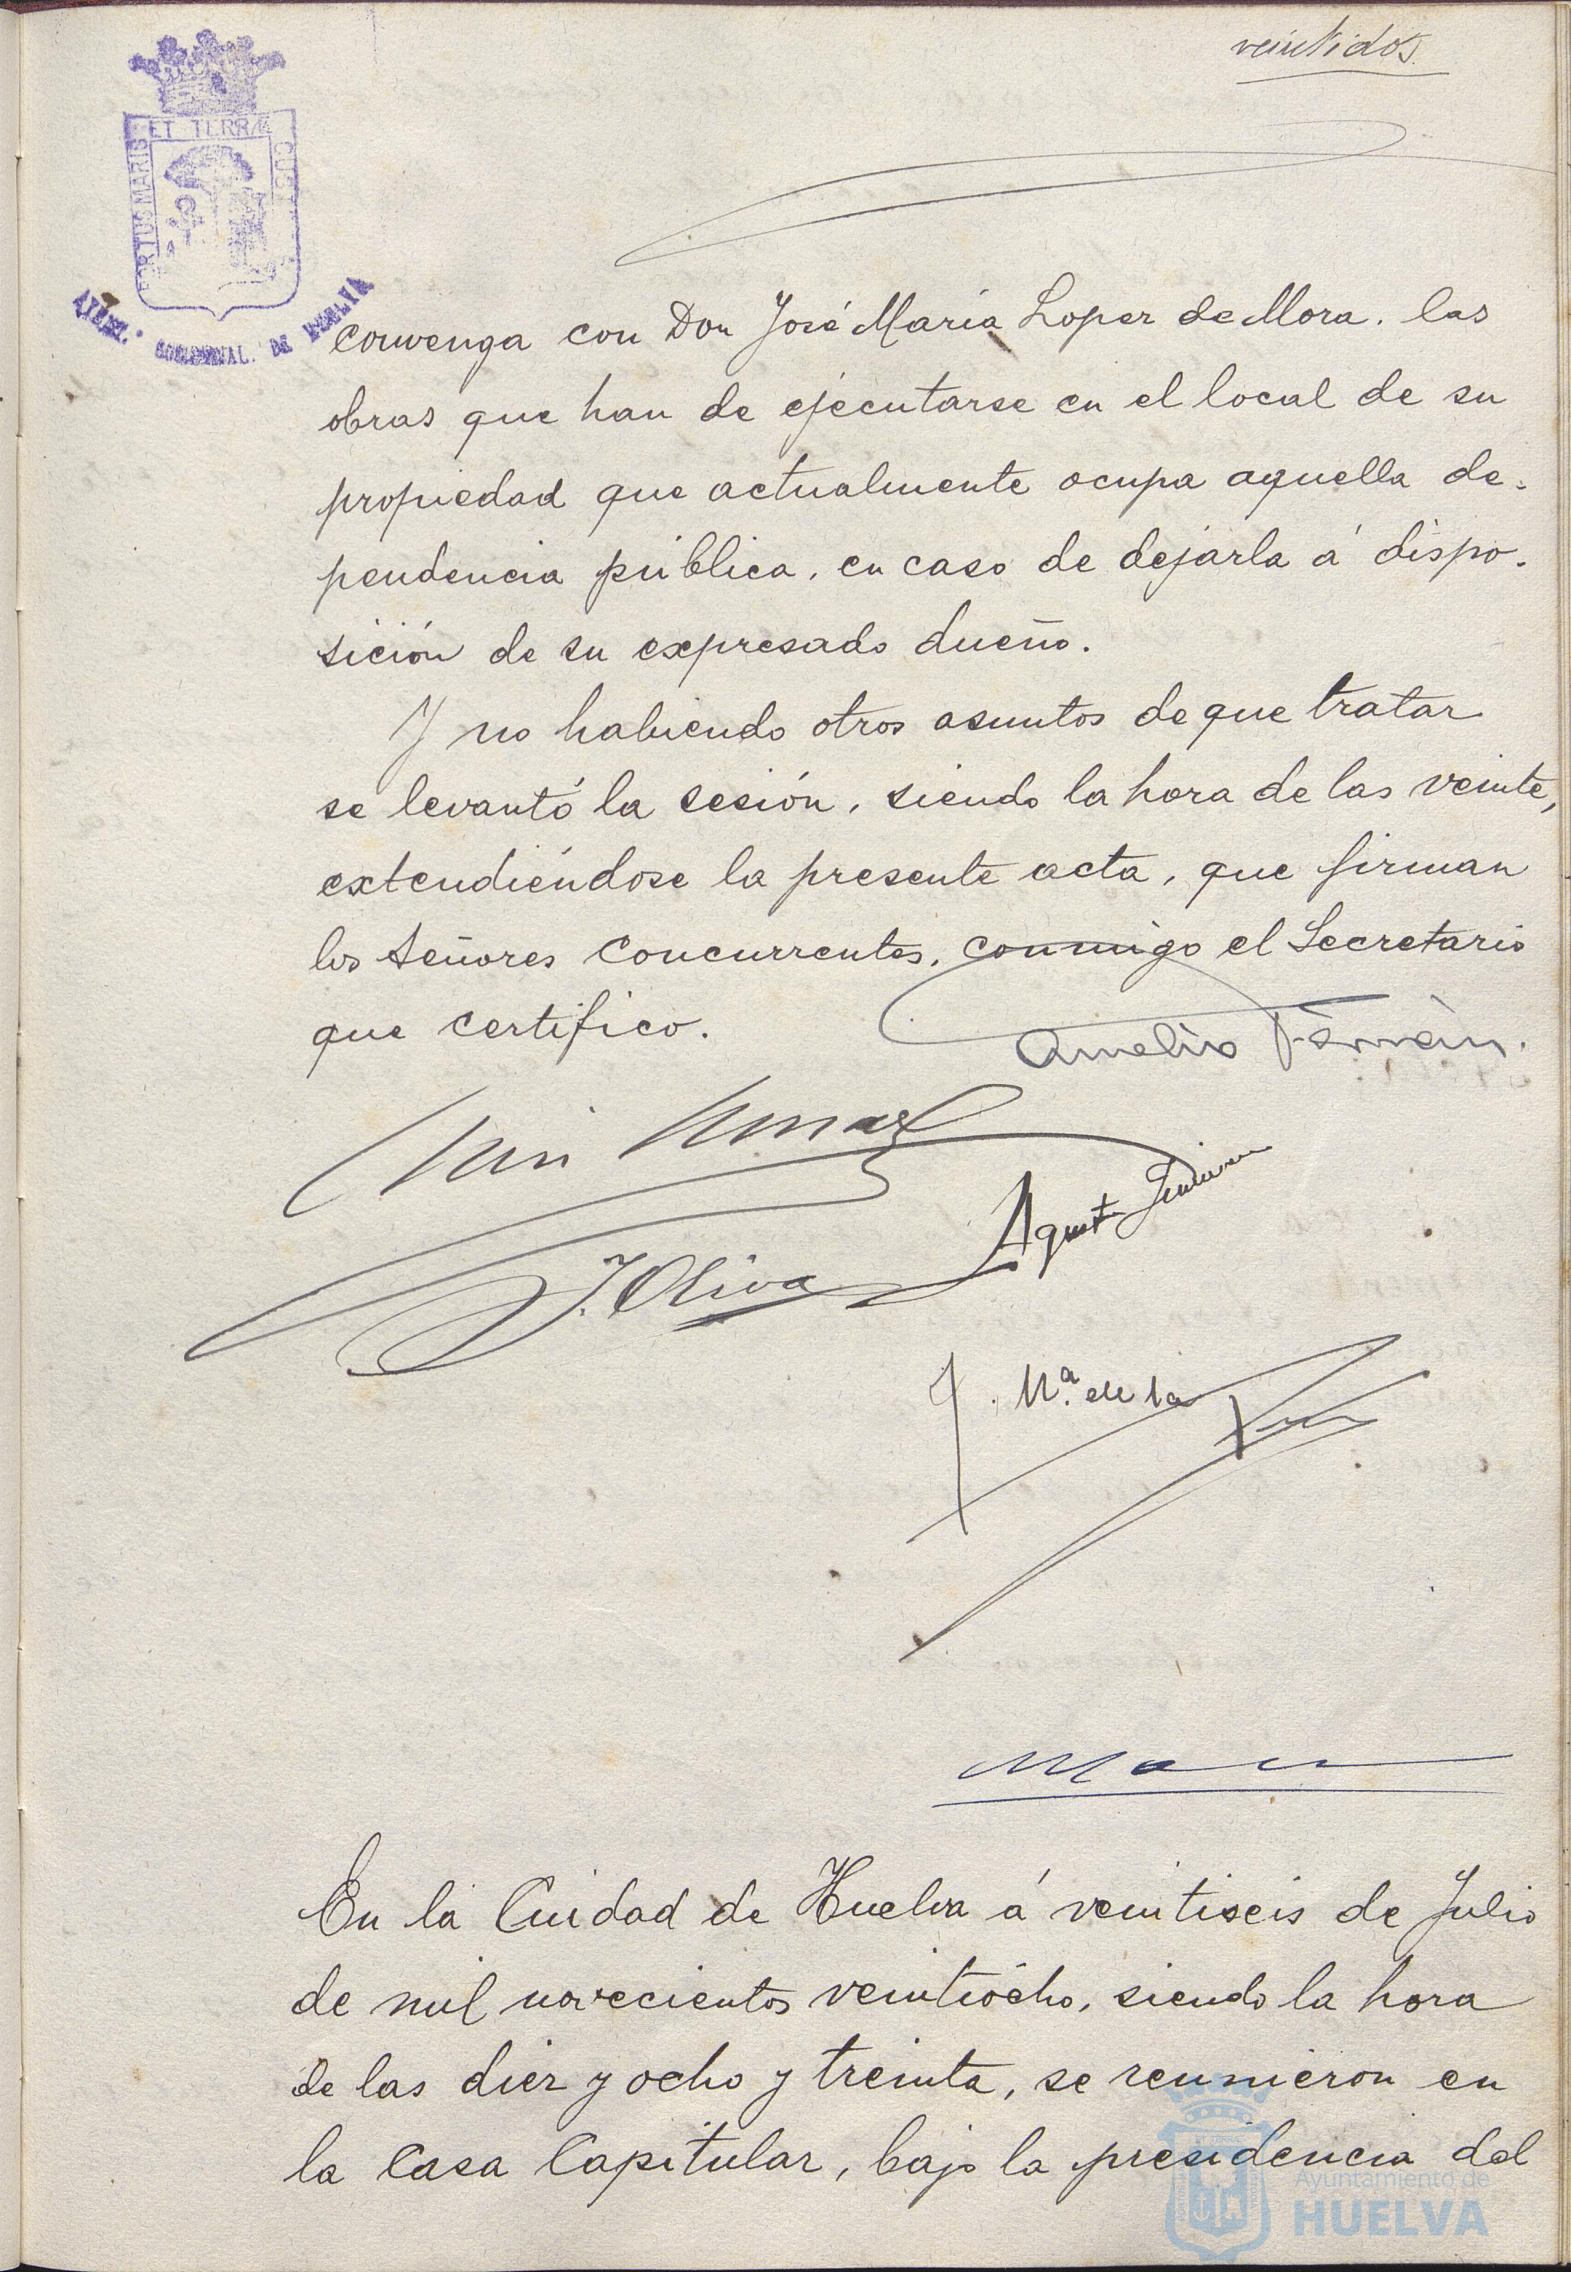 veintidos
PORTUS MARIS ET TERRÆ CUS
AYUNT. CONSTITUCIONAL. DE HUELVA
convenga con Don José María Loper de Mora. las
obras que han de ejecutarse en el local de su
propiedad que actualmente ocupa aquella de-
pendencia pública, en caso de dejarla á dispo-
sición de su expresado dueño.
Y no habiendo otros asuntos de que tratar
se levantó la sesión, siendo la hora de las veinte,
extendiéndose la presente acta, que firman
los Señores concurrentes, conmigo el Secretario
que certifico.
Amelio
Agust
J. Oliva
J. Mª de la
En la Cuidad de Huelva á veintiseis de Julio
de mil novecientos veintiócho, siendo la hora
de las dier y ocho y treinta, se reunieron en
la Casa Capitular, bajo la presidencia del
Ayuntamiento de
HUELVA